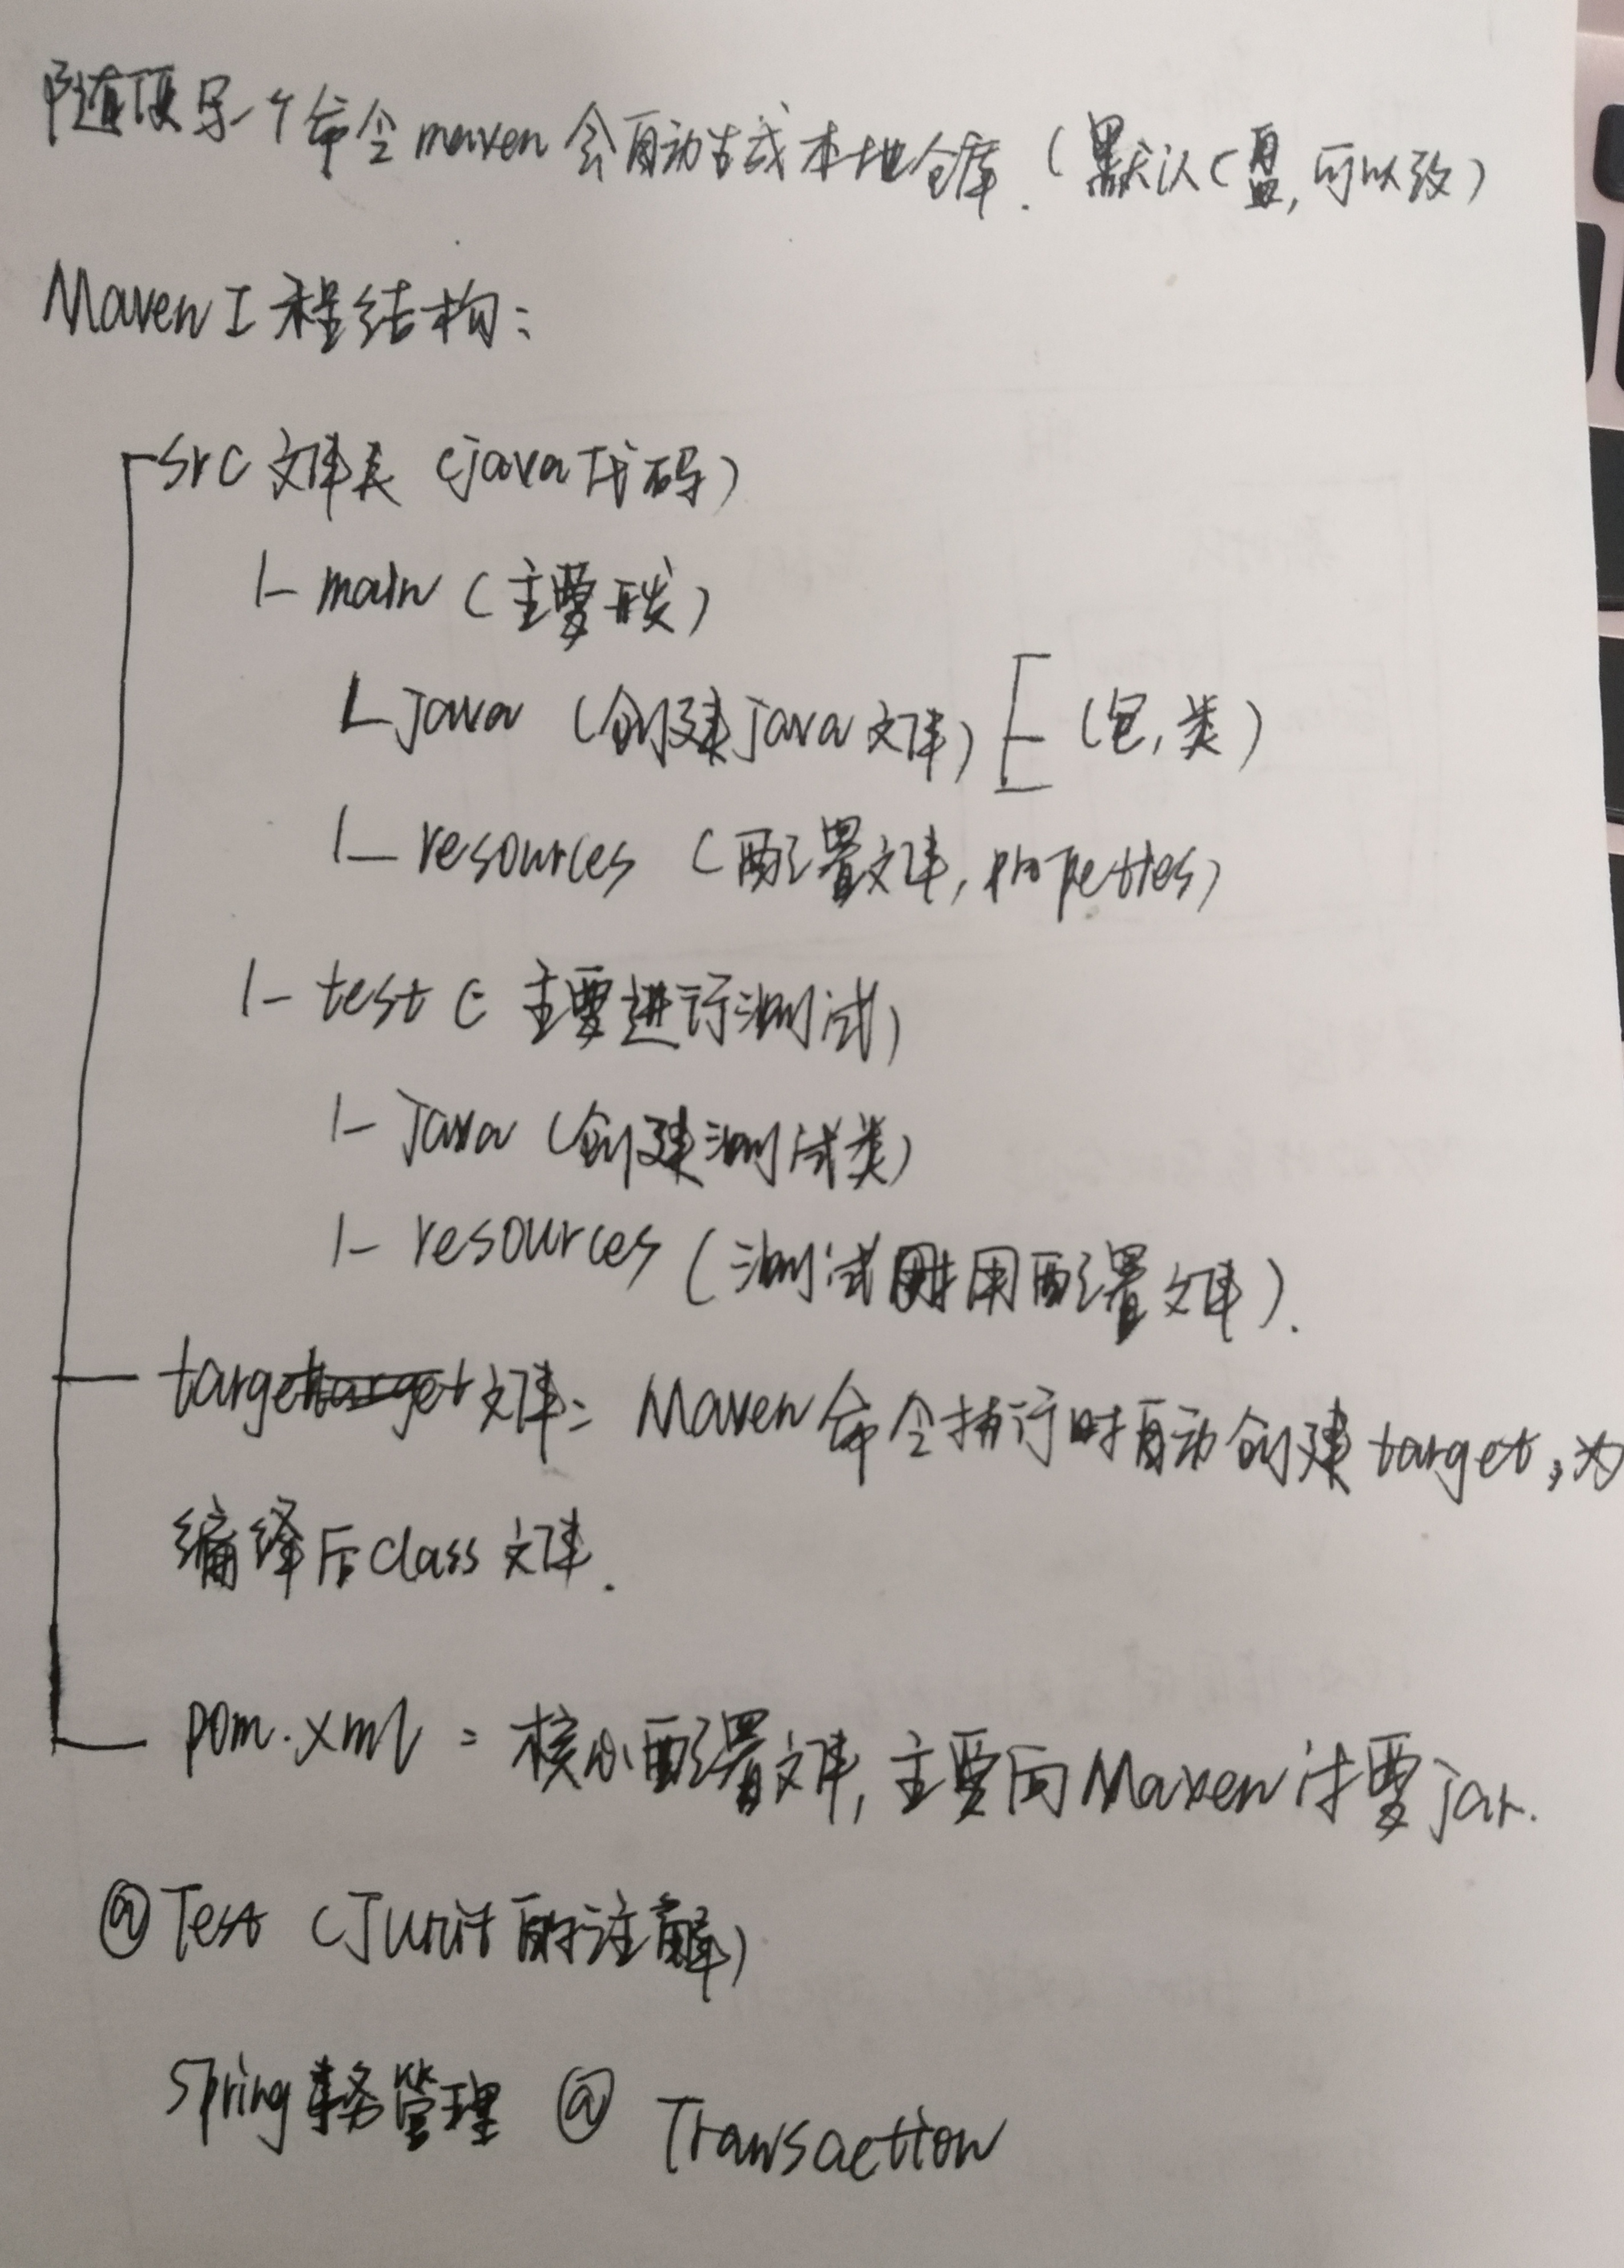 随便写一个命令maven会自动生成本地仓库.(默认C盘,可以改)
Maven工程结构:
src文件夹(java代码)
|- main(主要开发)
|- java(创建java文件)[(包,类)
|- resources(配置文件,properties)
|- test(主要进行测试)
|- java(创建测试类)
|- resources(测试时用配置文件).
target文件: Maven命令执行时自动创建target,为
编译后class文件.
pom.xml:核心配置文件,主要向Maven讨要jar.
@Test(Junit的注解)
Spring事务管理 @ Transaction